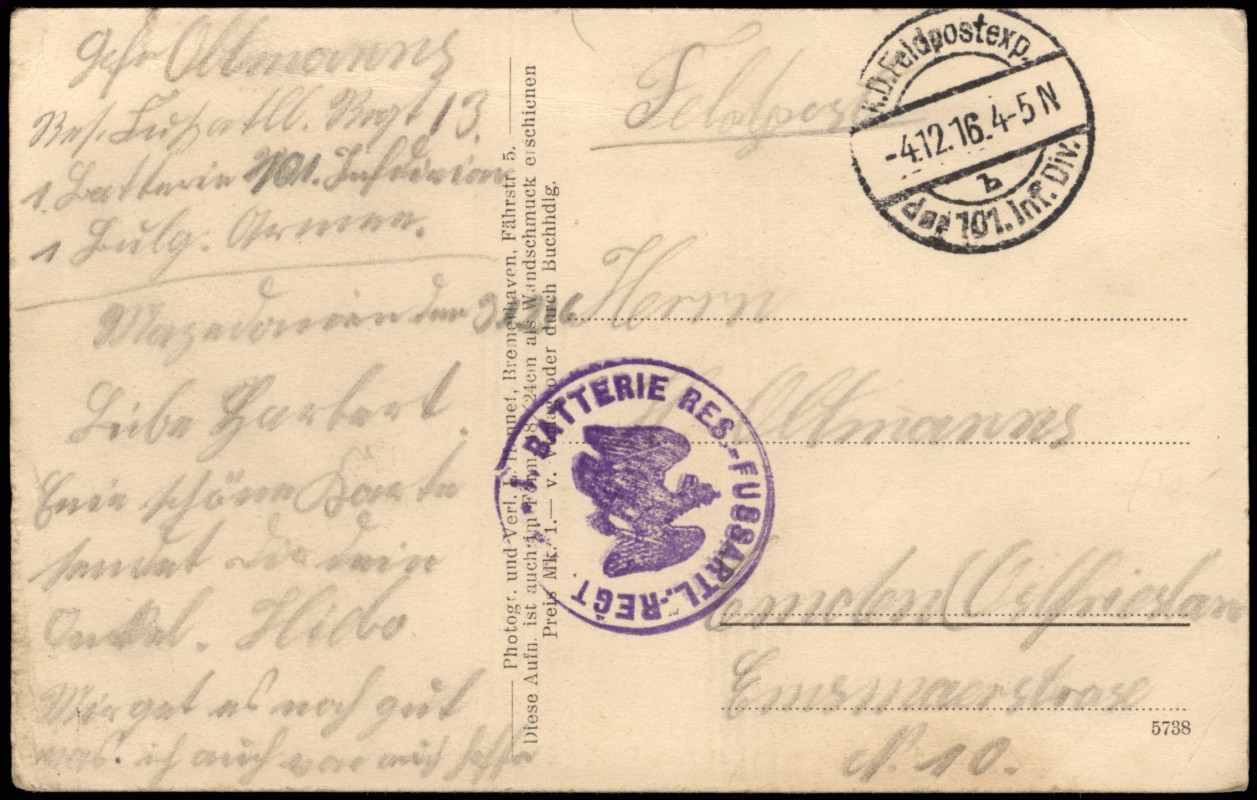 Gefr Oltmanns
Res. Fußartll. Regt 13.
1. Batterie 101. Infdivion
1 Bulg. Armee.
Mazedonien den 3.12.16
Liebe Harbert.
Eene schöne Karte
sendet dir dein
Onkel. Hilbo
Mir get es noch gut
was ich auch von auch hoffe
Photogr. und Verl. Bremerhaven, Fährstr. 5.
Diese Aufn. ist auch im Form. 18/24cm als Wandschmuck erschienen
Preis Mk. 1.— v. Verlag oder durch Buchhdlg.
Feldpost
K.D.Feldpostexp.
-4.12.16.4-5 N
b
der 101. Inf. Div.
Herrn
H. Oltmanns
1. BATTERIE RES.-FUSSARTL.-REGT.
Emden Ostfriesland
Emsmauerstrase
N. 10.
5738